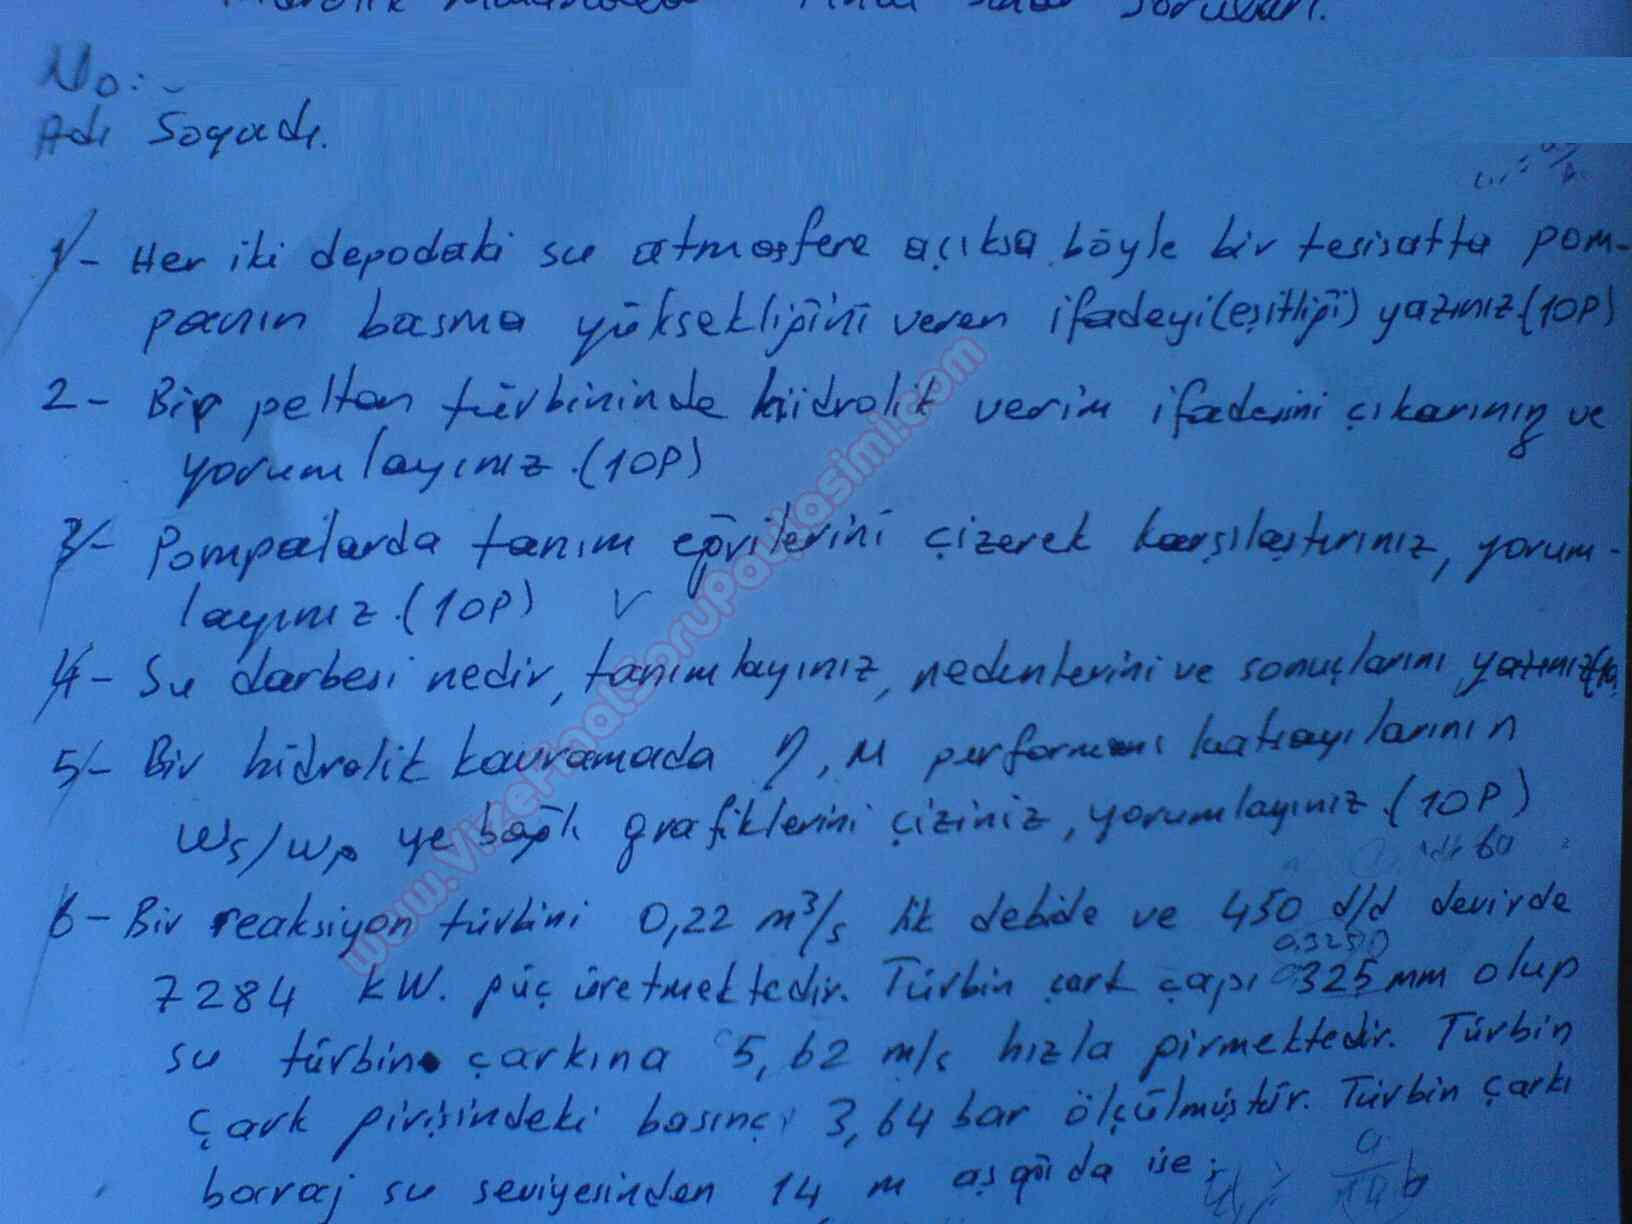 Soruları.
No:
Adı Soyadı.
1- Her iki depodaki su atmosfere açıksa böyle bir tesisatta pom-
panın basma yüksekliğini veren ifadeyi (eşitliği) yazınız.(10P)
2- Bir pelton türbininde hidrolik verim ifadesini çıkarınız ve
yorumlayınız.(10P)
3- Pompalarda tanım eğrilerini çizerek karşılaştırınız, yorum-
layınız.(10P)
4- Su darbesi nedir, tanımlayınız, nedenlerini ve sonuçlarını yazınız
5- Bir hidrolik kavramada η, M performans katsayılarının
ws/wp ye bağlı grafiklerini çiziniz, yorumlayınız.(10P)
6- Bir reaksiyon türbini 0,22 m³/s lik debide ve 450 d/d devirde
7284 kW. güç üretmektedir. Türbin çark çapı 325 mm olup
su türbin çarkına 5,62 m/s hızla girmektedir. Türbin
çark girişindeki basınç 3,64 bar ölçülmüştür. Türbin çarkı
baraj su seviyesinden 14 m aşağıda ise;
www.VizeFinalSoruPaylasimi.com